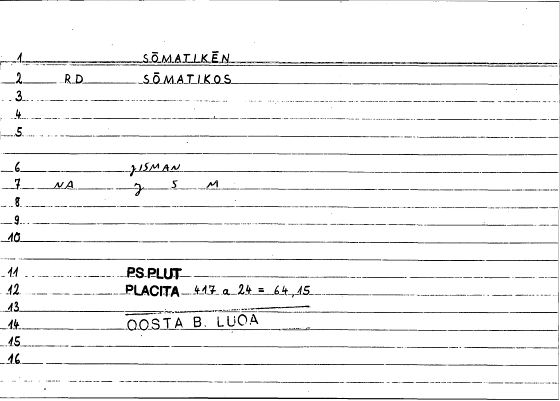 1 SŌMATIKĒN
2 RD SŌMATIKOS
3
4
5
6 ǧISMAN
7 NA ǧ S M
8
9
10
11 PS.PLUT
12 PLACITA 417 a 24 = 64,15
13
14 QOSTA B. LUQA
15
16